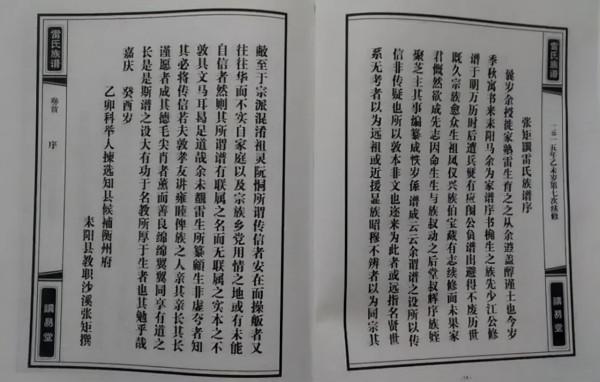 雷氏族谱
二零一五年乙未岁第七次续修
講易堂
张矩譔雷氏族谱序
曩岁余授徒家塾雷生育之之从余遊盖醇谨士也今岁
季秋寓书来耒阳马余为家谱序书槐生之族先少江公修
谱于明万历时后遭兵燹有应图公负谱出避得不废历世
既久宗族愈众生祖凤仪兴族伯宝藏有志续修而未果家
君慨然欲成先志因命生生与族叔动之后堂叔辉序族姪
聚芝主其事编纂成帙岁係谱成云云余谓谱之设所以传
信非传疑也所以敦本非文也迩来为此者或远指名贤世
系无考者以为远祖或近援显族昭穆不辨者以为同宗其
敝至于宗派混淆祖灵阮恫所谓传信者安在而操觚者又
往往华而不实自家庭以及宗族乡党用情之地或有未能
自信者然则其所谓谱有联属之名而无联属之实本之不
敦具文马耳曷足道哉余未覩雷生所纂顧生非虚夸者知
其必将传信若夫敦孝友讲雍睦俾族之人亲其亲长其长
谨愿者成其德毛尖肖者薰而善良绵绵翼翼同享有道之
长是是斯谱之设大有功于名教所厚于生者也其勉乎哉
嘉庆 癸酉岁
乙卯科举人拣选知县候补衡州府
耒阳县教职沙溪张矩撰
雷氏族谱
卷首
序
講易堂